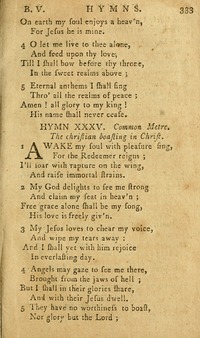 B. V. HYMNS. 333
On earth my ſoul enjoys a heav'n,
For Jeſus he is mine.
4 O let me live to thee alone,
And feed upon thy love,
Till I ſhall bow before thy throne,
In the ſweet realms above ;
5 Eternal anthems I ſhall ſing
Thro' all the realms of peace ;
Amen ! all glory to my king !
His name ſhall never ceaſe.
HYMN XXXV. Common Metre.
The chriſtian boaſting in Chriſt.
1 AWAKE my ſoul with pleaſure ſing,
For the Redeemer reigns ;
I'll ſoar with rapture on the wing,
And raiſe immortal ſtrains.
2 My God delights to ſee me ſtrong
And claim my ſeat in heav'n ;
Free grace alone ſhall be my ſong,
His love is freely giv'n.
3 My Jeſus loves to chear my voice,
And wipe my tears away :
And I ſhall yet with him rejoice
In everlaſting day.
4 Angels may gaze to ſee me there,
Brought from the jaws of hell ;
But I ſhall in their glories ſhare,
And with their Jeſus dwell.
5 They have no worthineſs to boaſt,
Nor glory but the Lord ;